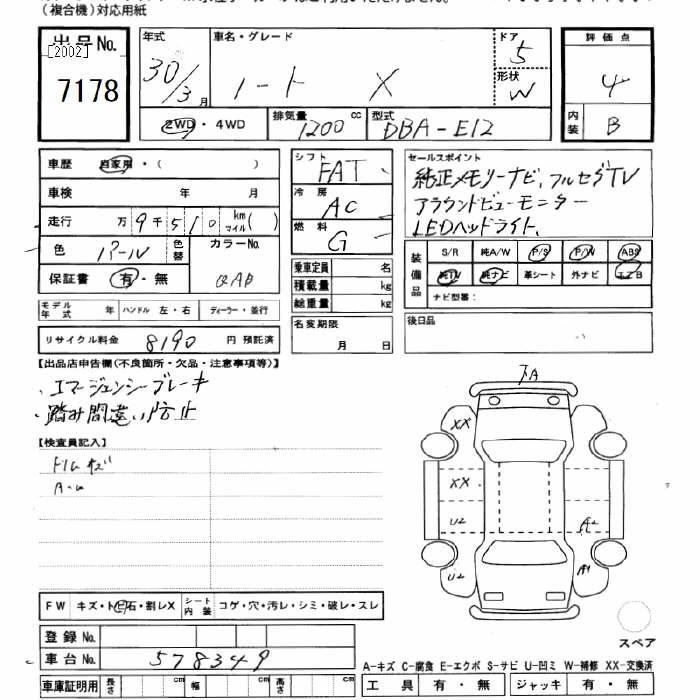 （複合機）対応用紙
出品No.
[2002]
7178
年式 30/3月
車名・グレード ノート X
ドア 5
形状 W
評価点 4
内装 B
2WD・4WD
排気量 1200 cc
型式 DBA-E12
車歴 自家用・( )
車検 年 月
走行 万9千510 km マイル( )
色 パール 色替
カラーNo. QAB
保証書 有・無
シフト FAT
冷房 AC
燃料 G
乗車定員 名
積載量 kg
総重量 kg
セールスポイント
純正メモリーナビ、フルセグTV
アラウンドビューモニター
LEDヘッドライト、
装備品
S/R 純A/W P/S P/W ABS
純TV 純ナビ 革シート 外ナビ エアB
ナビ型番：
モデル年式 ハンドル 左・右 ディーラー・並行
リサイクル料金 8190 円 預託済
名変期限 月 日
後日品
【出品店申告欄(不良箇所・欠品・注意事項等)】
・エマージェンシーブレーキ
・踏み間違い防止
【検査員記入】
ドアA
XX
XX
U2
U2
A2
A1
FW キズ・トビ石・割レX
シート内装 コゲ・穴・汚レ・シミ・破レ・スレ
登録No.
車台No. 578349
スペア
A-キズ C-腐食 E-エクボ S-サビ U-凹ミ W-補修 XX-交換済
車庫証明用 長さ cm 幅 cm 高さ cm
工具 有・無 ジャッキ 有・無